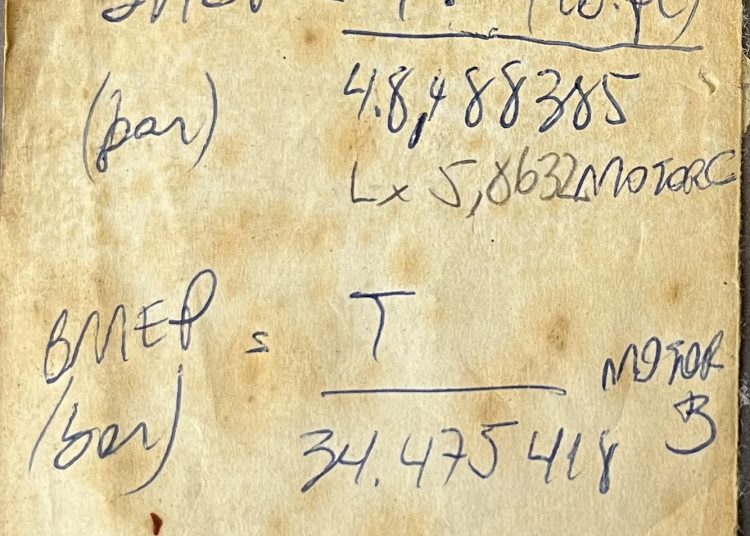 BMEP =
(bar)
48,488385
L x 5,8632 MOTOR C
BMEP = T
(bar)
34.475418
MOTOR
B